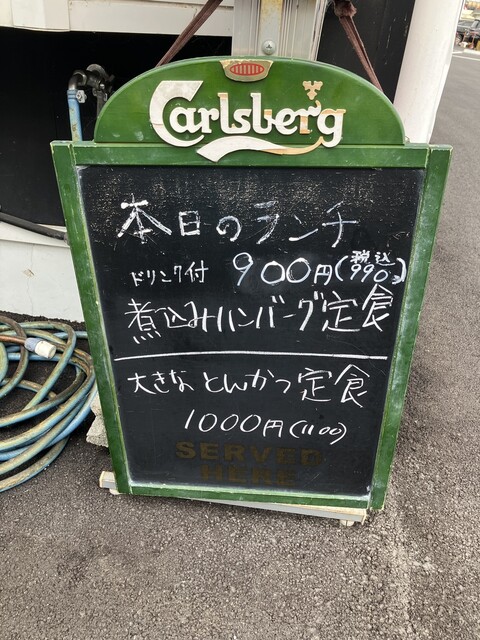 Carlsberg
本日のランチ
ドリンク付 900円(税込990)
煮込みハンバーグ定食
大きな とんかつ定食
1000円(1100)
SERVED
HERE